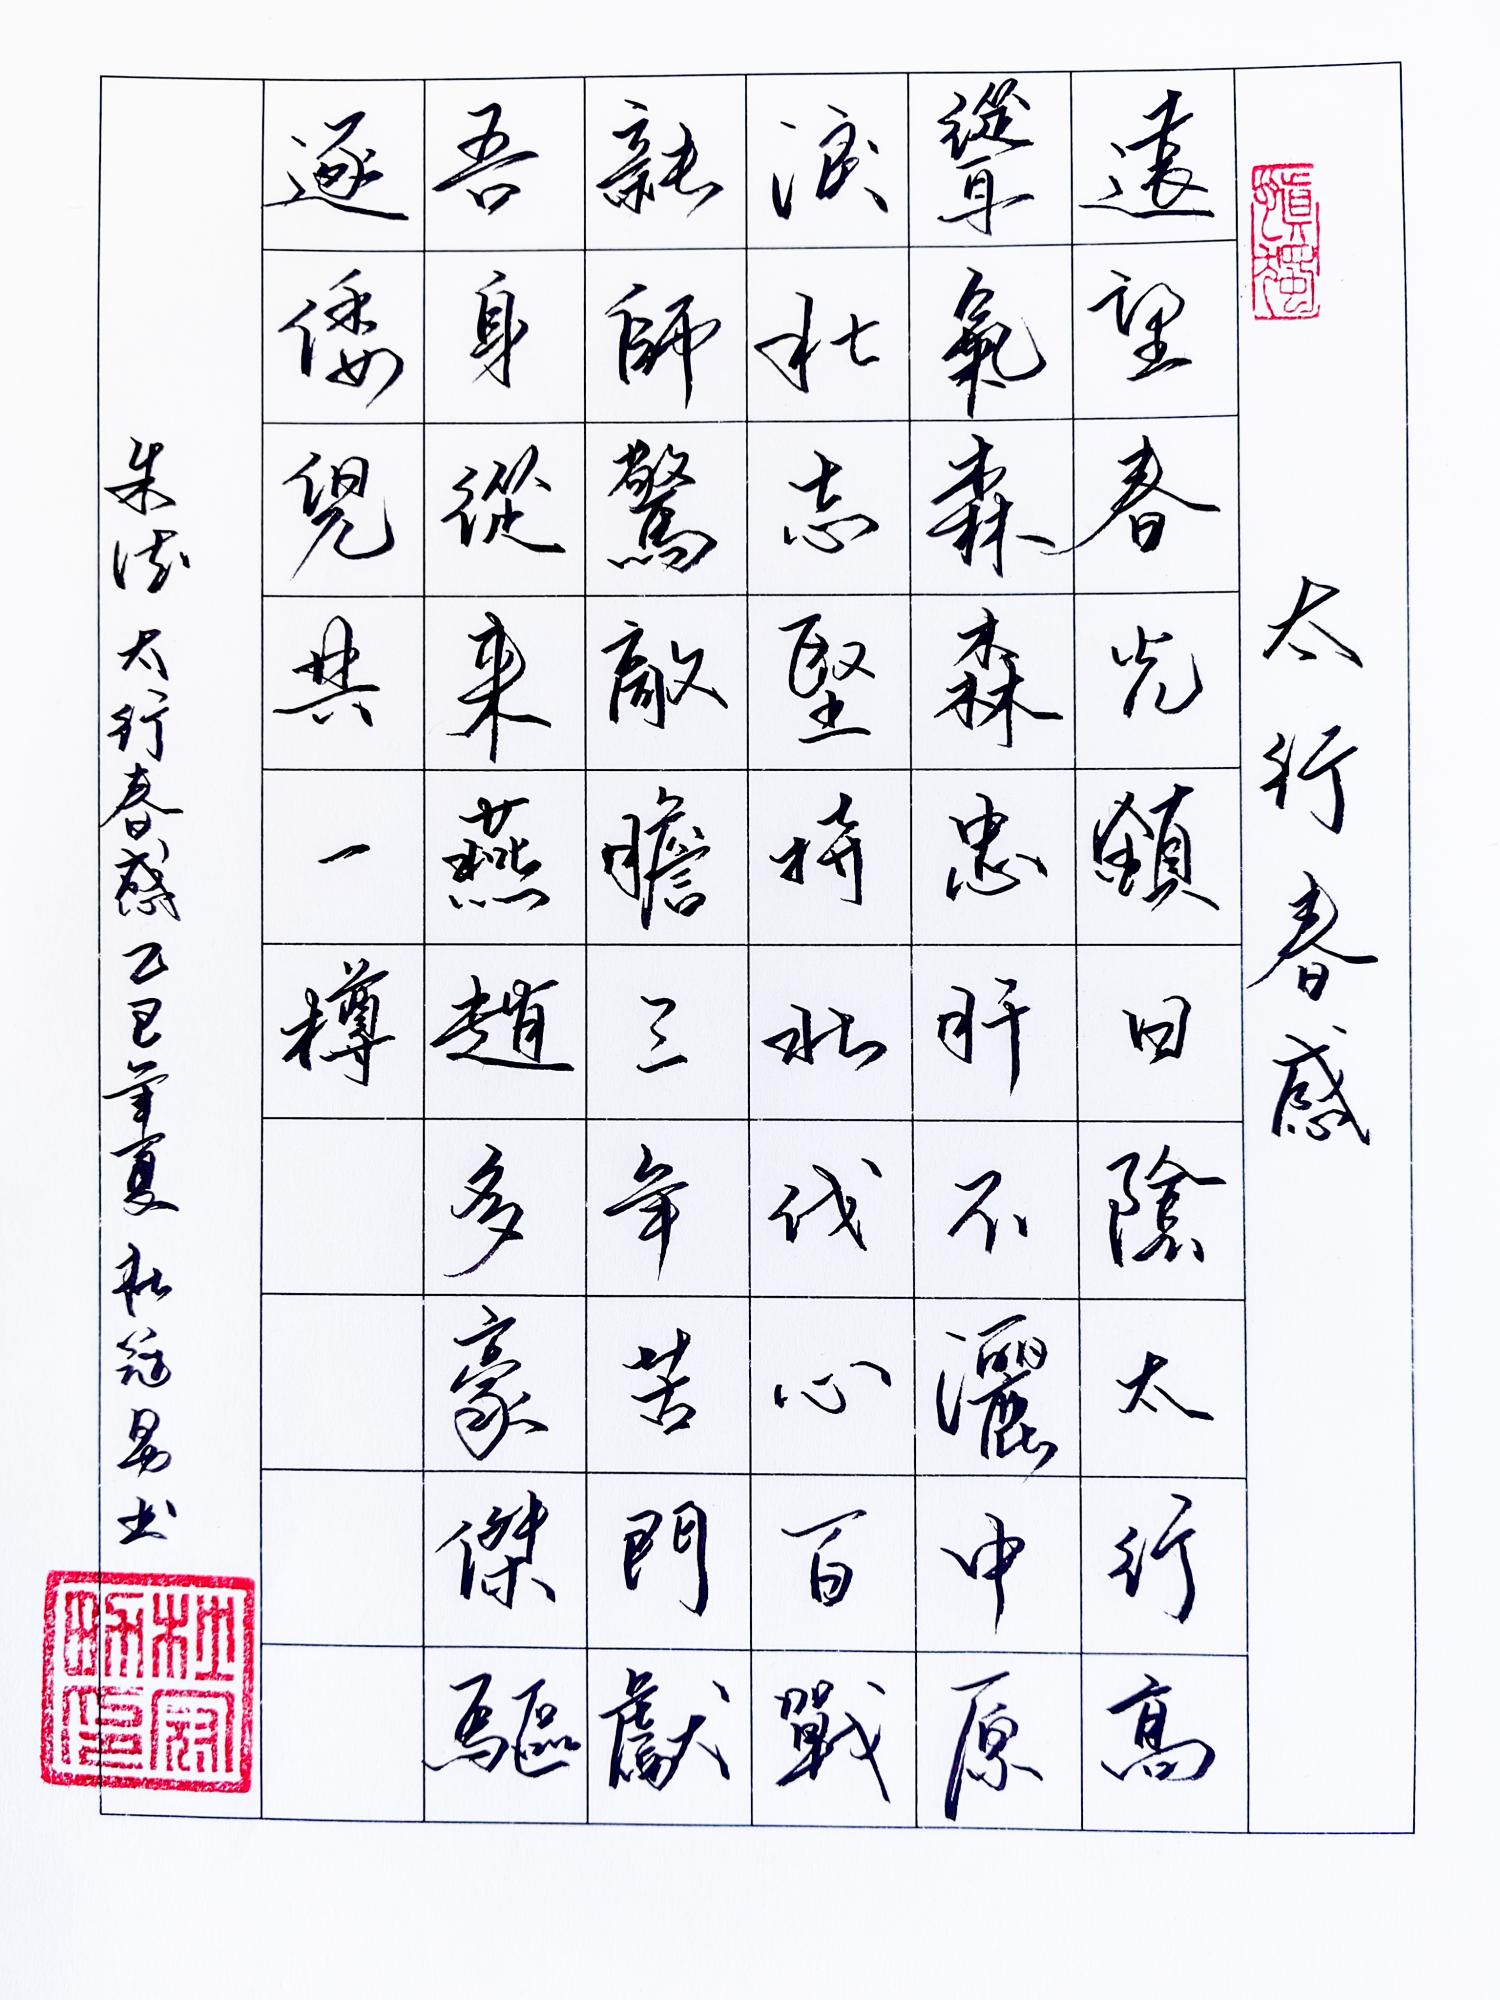 太行春感
遠望春光鎮日陰太行高
聳氣森森忠肝不灑中原
淚壯志堅持北伐心百戰
新師驚敵膽三年苦鬥獻
吾身從來燕趙多豪傑驅
逐倭兒共一樽
朱德 太行春感 乙巳年夏 杜冠书